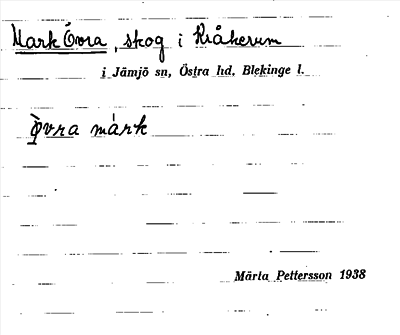 Mark Övra, skog i Riåkerum
i Jämjö sn, Östra hd, Blekinge l.
ǫ̀vra márk
Märta Pettersson 1938